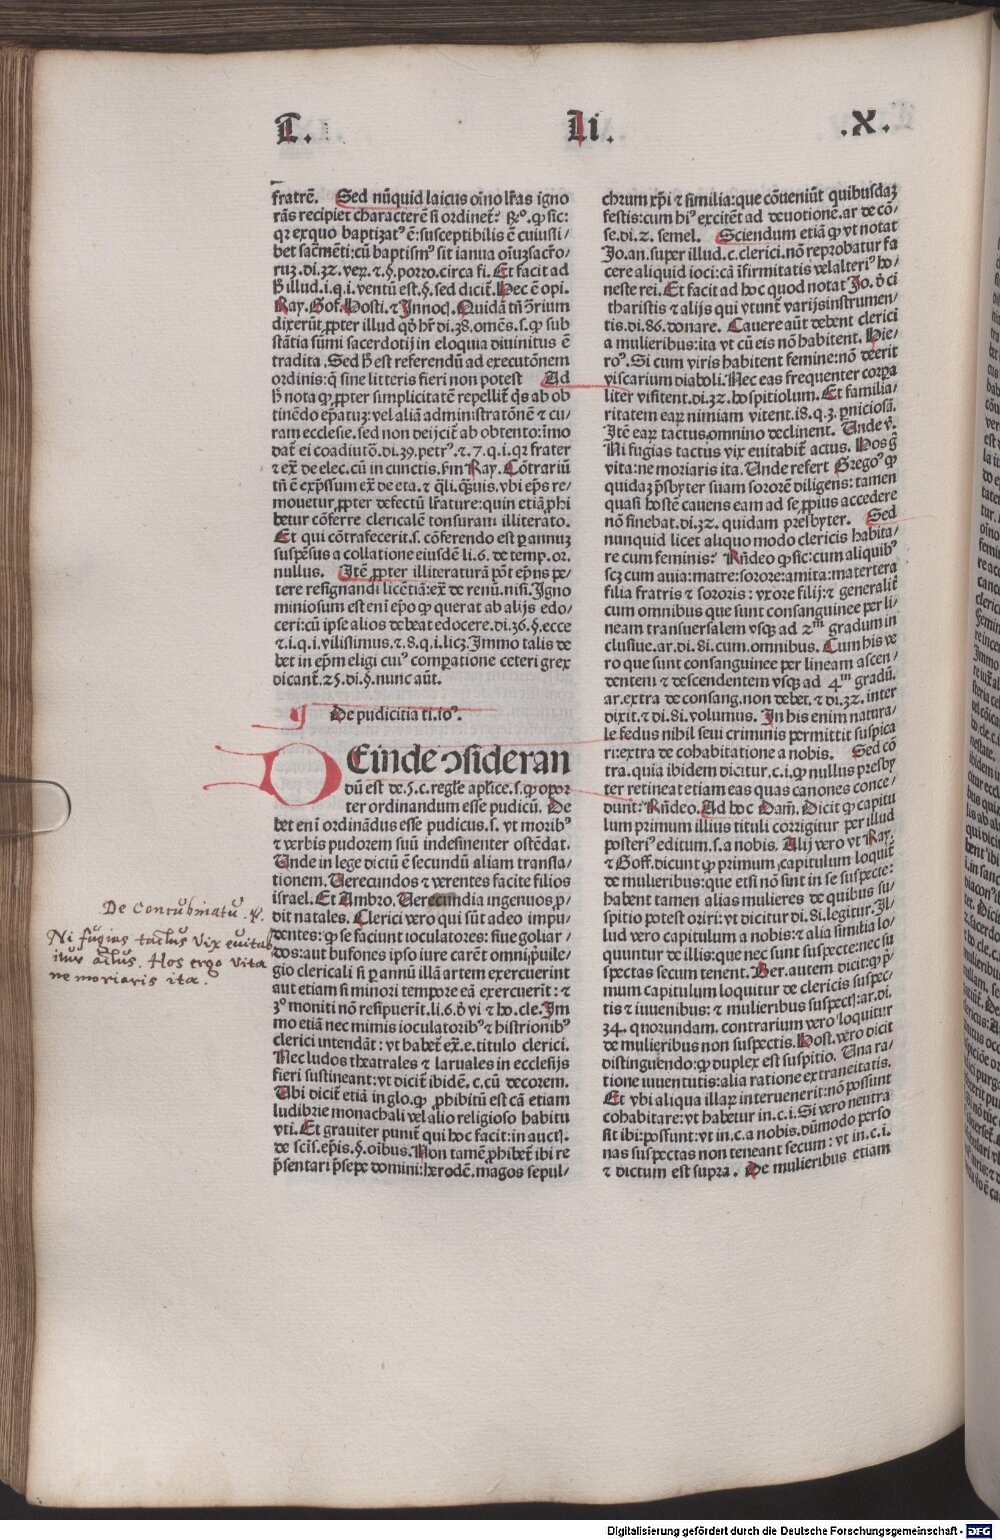 T. Li. .X.
fratrē. Sed nūquid laicus oīno lr̄as igno
rās recipiet characterē si ordinet᷑: R̄º. ꝙ sic:
qr ex quo baptizatꝰ ē: susceptibilis ē cuiusli/
bet sacr̄mēti: cū baptismꝰ sit ianua oīuꝫ sacr̄o/
ruꝫ. di. 32. veꝝ. ⁊ .§. porro. circa fi. Et facit ad
h̄ illud .i. q. i. ventū est. §. sed dicit᷑. Hec ē opi.
Ray. Gof. Hosti. ⁊ Innoc̄. Quidā tn̄ ↄ̄rium
dixerūt ꝓpter illud qd̄ hr̄ di. 38. omēs. s. ꝙ sub
stātia sūmi sacerdotij in eloquia diuinitus ē
tradita. Sed h̄ est referendū ad executōnem
ordinis: q̄ sine litteris fieri non potest Ad
h̄ nota ꝙ ꝓpter simplicitatē repellit᷑ q̄s ab ob
tinēdo ep̄atuꝫ: vel aliā administratōnē ⁊ cu/
ram ecclesie. sed non deijcit᷑ ab obtento: īmo
dat᷑ ei coadiutō. di. 39. petrꝰ. ⁊ .7. q. i. qr frater
⁊ ex̄ de elec. cū in cunctis. ẜm Ray. Cōtrariū
tn̄ ē exp̄ssum ex̄ de eta. ⁊ q̄li. q̄uis. vbi ep̄s re/
mouetur ꝓpter defectū lr̄ature: quin etiā ꝓhi
betur cōferre clericalē tonsuram illiterato.
Et qui cōtrafecerit. s. cōferendo est ꝑ annuꝫ
suspēsus a collatione eiusdē li. 6. de temp. or.
nullus. Itē ꝓpter illiteraturā pōt ep̄ns pe/
tere resignandi licētiā: ex̄ de renū. nisi. Igno
miniosum est enī ep̄o ꝙ querat ab alijs edo/
ceri: cū ipse alios debeat edocere. di. 36. §. ecce
⁊ .i. q. i. vilissimus. ⁊ .8. q. i. licꝫ. Immo talis de
bet in ep̄m eligi cuiꝰ comꝑatione ceteri grex
dicant᷑. 25. di. §. nunc aūt.
De pudicitia ti. ioꝰ.
DEinde ↄsideran
dū est de .5. c. regl̓e apl̓ice. s. ꝙ opor
ter ordinandum esse pudicū. De
bet enī ordinādus esse pudicus. s. vt moribꝰ
⁊ verbis pudorem suū indesinenter ostēdat.
Unde in lege dictū ē secundū aliam transla/
tionem. Verecundos ⁊ verentes facite filios
israel. Et Ambro. Verecundia ingenuos ꝓ/
dit natales. Clerici vero qui sūt adeo impu/
dentes: ꝙ se faciunt ioculatores: siue goliar/
dos: aut bufones ipso iure carēt omni p̄uile/
gio clericali si ꝑ annū illā artem exercuerint
aut etiam si minori tempore eā exercuerīt: ⁊
3º moniti nō resipuerīt. li. 6. d̄ vi ⁊ ho. cle. Im
mo etiā nec mimis ioculatoribꝰ ⁊ histrionibꝰ
clerici intendāt: vt habet᷑ ex̄. e. titulo clerici.
Nec ludos theatrales ⁊ laruales in ecclesijs
fieri sustineant: vt dicit᷑ ibidē. c. cū decorem.
Ubi dicit᷑ etiā in glo. ꝙ ꝓhibitū est cā etiam
ludibrie monachali vel alio religioso habitu
vti. Et grauiter punit᷑ qui hoc facit: in auct̄.
de scīs. ep̄is. §. oībus. Non tamē ꝓhibet᷑ ibi re
p̄sentari p̄sepe domini: herodē. magos sepul/
chrum xp̄i ⁊ similia: que cōueniūt quibusdaꝫ
festis: cum hiꝰ excitēt ad deuotionē. ar de cō/
se. di. 2. semel. Sciendum etiā ꝙ vt notat
Jo. an. super illud. c. clerici. nō reprobatur fa
cere aliquid ioci: cā īfirmitatis vel alteriꝰ ho/
neste rei. Et facit ad hoc quod notat Jo. d̄ ci
tharistis ⁊ alijs qui vtunt᷑ varijs instrumen/
tis. di. 86. donare. Cauere aūt debent clerici
a mulieribus: ita vt cū eis nō habitent. Hie/
roꝰ. Si cum viris habitent femine: nō deerit
viscarium diaboli. Nec eas frequenter corpa
liter visitent. di. 32. hospitiolum. Et familia/
ritatem eaꝝ nimiam vitent. i8. q. 3. ꝑniciosā.
Itē eaꝝ tactus omnino declinent. Unde v̄.
Ni fugias tactus vix euitabit᷑ actus. Hos g̊
vita: ne moriaris ita. Unde refert Gregoꝰ ꝙ
quidaꝫ p̄sbyter suam sororē diligens: tamen
quasi hostē cauens eam ad se ꝓpius accedere
nō sinebat. di. 32. quidam presbyter. Sed
nunquid licet aliquo modo clericis habita/
re cum feminis: Rn̄deo ꝙ sic: cum aliquibꝰ
scꝫ cum auia: matre: sorore: amita: matertera
filia fratris ⁊ sororis: vxore filij: ⁊ generalit᷑
cum omnibus que sunt consanguinee per li/
neam transuersalem vsqꝫ ad 2m gradum in
clusiue. ar. di. 8i. cum. omnibus. Cum his ve
ro que sunt consanguinee per lineam ascen/
dentem ⁊ descendentem vsqꝫ ad 4m gradū.
ar. extra de consang. non debet. ⁊ di. 32. inter
dixit. ⁊ di. 8i. volumus. In his enim natura/
le fedus nihil seui criminis permittit suspica
ri: extra de cohabitatione a nobis. Sed cō
tra. quia ibidem dicitur. c. i. ꝙ nullus presby
ter retineat etiam eas quas canones conce/
diunt: Rn̄deo. Ad hoc Dam̄. Dicit ꝙ capitu
lum primum illius tituli corrigitur per illud
posteriꝰ editum. s. a nobis. Alij vero vt Ray.
⁊ Goff. dicunt ꝙ primum capitulum loquit᷑
de mulieribus: que etsi nō sint in se suspecte:
habent tamen alias mulieres de quibus su/
spitio potest oriri: vt dicitur di. 8i. legitur. Il/
lud vero capitulum a nobis: ⁊ alia similia lo/
quuntur de illis: que nec sunt suspecte: nec su
spectas secum tenent. Ber. autem dicit: ꝙ p̄/
mum capitulum loquitur de clericis suspec/
tis ⁊ iuuenibus: ⁊ mulieribus suspect̄: ar. di.
34. quorundam. contrarium vero loquitur
de mulieribus non suspectis. Host. vero dicit
distinguendo: ꝙ duplex est suspitio. Una ra/
tione iuuentutis: alia ratione extraneitatis.
Et vbi aliqua illaꝝ interuenerit: nō possunt
cohabitare: vt habetur in. c. i. Si vero neutra
sit ibi: possunt: vt in. c. a nobis. dūmodo perso
nas suspectas non teneant secum: vt in. c. i.
⁊ dictum est supra. De mulieribus etiam
De Concubinatu. V.
Ni fugias tactus vix euitab
itur actus. Hos ergo vita
ne moriaris ita.
Digitalisierung gefördert durch die Deutsche Forschungsgemeinschaft - DFG